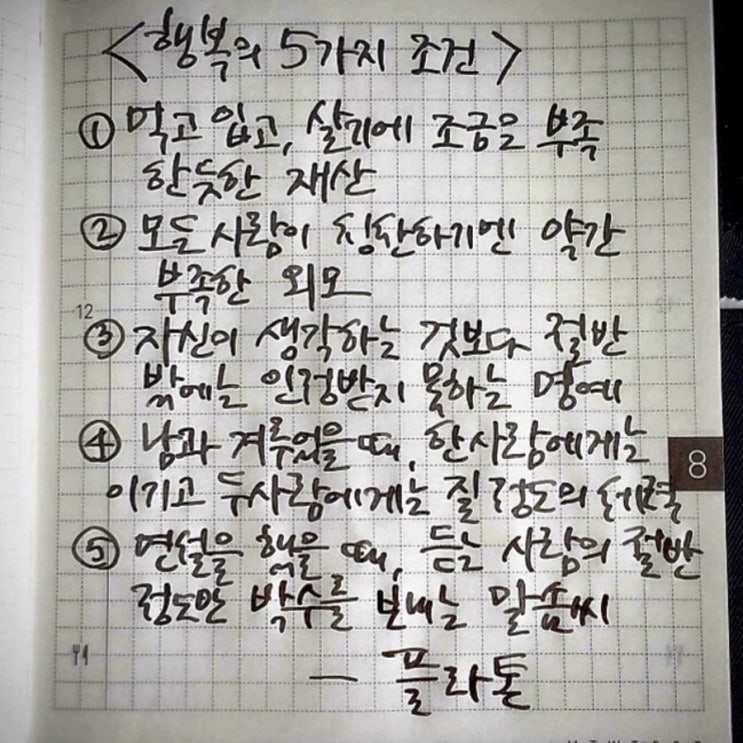 <행복의 5가지 조건>
① 먹고 입고, 살기에 조금은 부족
한듯한 재산
② 모든 사람이 칭찬하기엔 약간
부족한 외모
12
③ 자신이 생각하는 것보다 절반
밖에는 인정받지 못하는 명예
④ 남과 겨루었을 때, 한사람에게는
8
이기고 두사람에게는 질 정도의 체력
⑤ 연설을 했을 때, 듣는 사람의 절반
정도만 박수를 보내는 말솜씨
— 플라톤